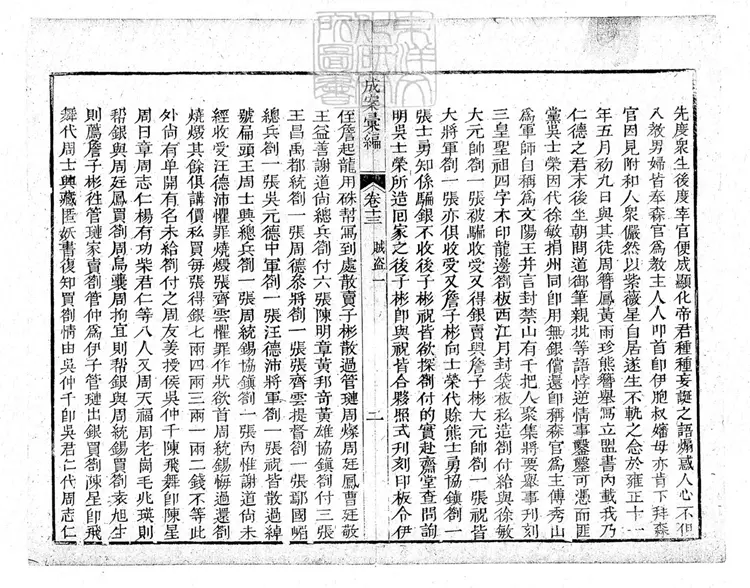 先度衆生後度宰官便成顯化帝君種種妄誕之語煽惑人心不但
入教男婦皆奉森官為教主人人叩首即伊胞叔嬸母亦肯下拜森
官因見附和人衆儼然以紫薇星自居遂生不軌之念於雍正十一
年五月初九日與其徒周簪鳳黃雨珍熊簪舉寫立盟書內載我乃
仁德之君末後坐朝問道御筆親批等語悖逆情事鑿鑿可憑而匪
黨吳士榮因代徐敏捐州同即用無銀償還即稱森官為主傅秀山
為軍師自稱為文陽王并言封禁山有千把人衆集將要舉事刊刻
三皇聖祖四字木印龍邊劄板西江月封袋板私造劄付給與徐敏
大元帥劄一張被騙收受又得銀賣與詹子彬大元帥劄一張祝皆
大將軍劄一張亦俱收受又詹子彬向士榮代賒熊士勇協鎮劄一
張士勇知係騙銀不收後子彬祝皆欲探劄付的實赴齋堂查問詢
明吳士榮所造回家之後子彬即與祝皆合夥照式刋刻印板令伊
成案彙編
卷十三
賊盜一
二
侄詹起龍用硃幇寫到處散賣子彬散過管璉周燦周廷鳳曹廷敬
王益善謝道尚總兵劄付六張陳明章黃邦竒黃雄協鎮劄付三張
王昌禹都統劄一張周德叅將劄一張張齊雲提督劄一張鄢國崵
總兵劄一張吳元德中軍劄一張汪德沛將軍劄一張祝皆散過綽
號扁頭王周士興總兵劄一張周統錫協鎮劄一張內惟謝道尚未
經收受汪德沛懼罪燒燬張齊雲懼罪作狀欲首周統錫悔過還劄
燒燬其餘俱講價私買每張得銀七兩四兩三兩一兩二錢不等此
外尚有单開有名未給劄付之周友姜授侯吳仲千陳飛舞即陳星
周日章周志仁楊有功柴君仁等八人又周天福周老崗毛兆瑛則
幇銀與周廷鳳買劄周烏襄周拘宜則幇銀與周統錫買劄袁旭生
則薦詹子彬徃管璉家賣劄管仲為伊子管璉出銀買劄陳星即飛
舞代周士興藏匿妖書復知買劄情由吳仲千即吳君仁代周志仁